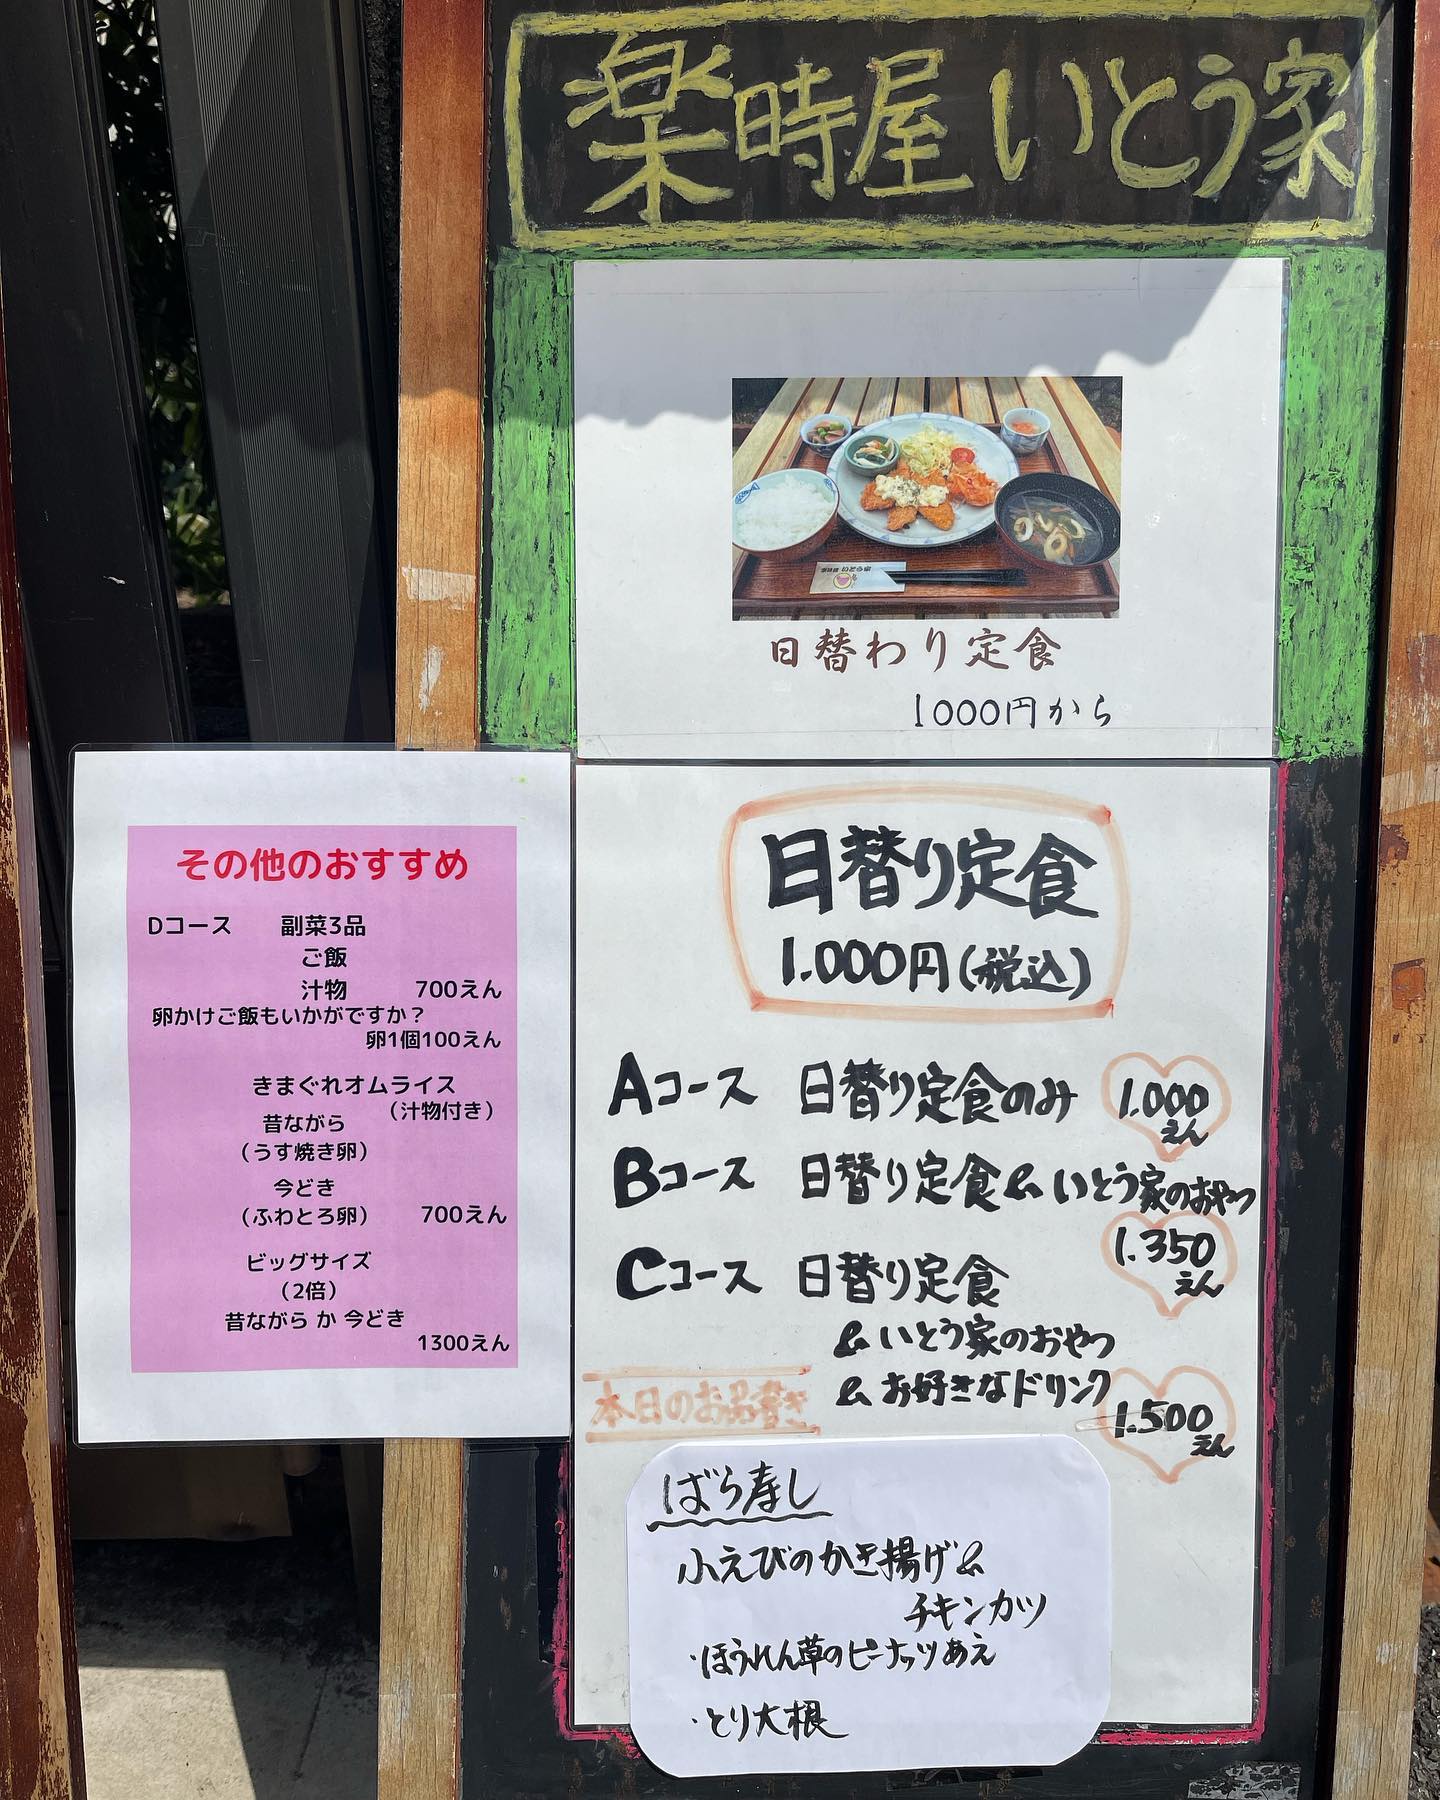 楽時屋いとう家
日替わり定食
1000円から
日替り定食
1.000円(税込)
Aコース 日替り定食のみ 1.000えん
Bコース 日替り定食&いとう家のおやつ
1.350えん
Cコース 日替り定食
&いとう家のおやつ
&お好きなドリンク 1.500えん
本日のお品書き
ばら寿し
小えびのかき揚げ&
チキンカツ
・ほうれん草のピーナッツあえ
・とり大根
その他のおすすめ
Dコース 副菜3品
ご飯
汁物 700えん
卵かけご飯もいかがですか?
卵1個100えん
きまぐれオムライス
(汁物付き)
昔ながら
(うす焼き卵)
今どき
(ふわとろ卵) 700えん
ビッグサイズ
(2倍)
昔ながら か 今どき
1300えん